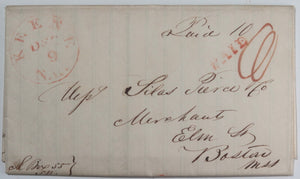 KEENE
9
N.H.
Paid 10
PAID
6
Messrs Silas Pierce & Co
Merchants
Elm St
Boston
Mss
Box 55